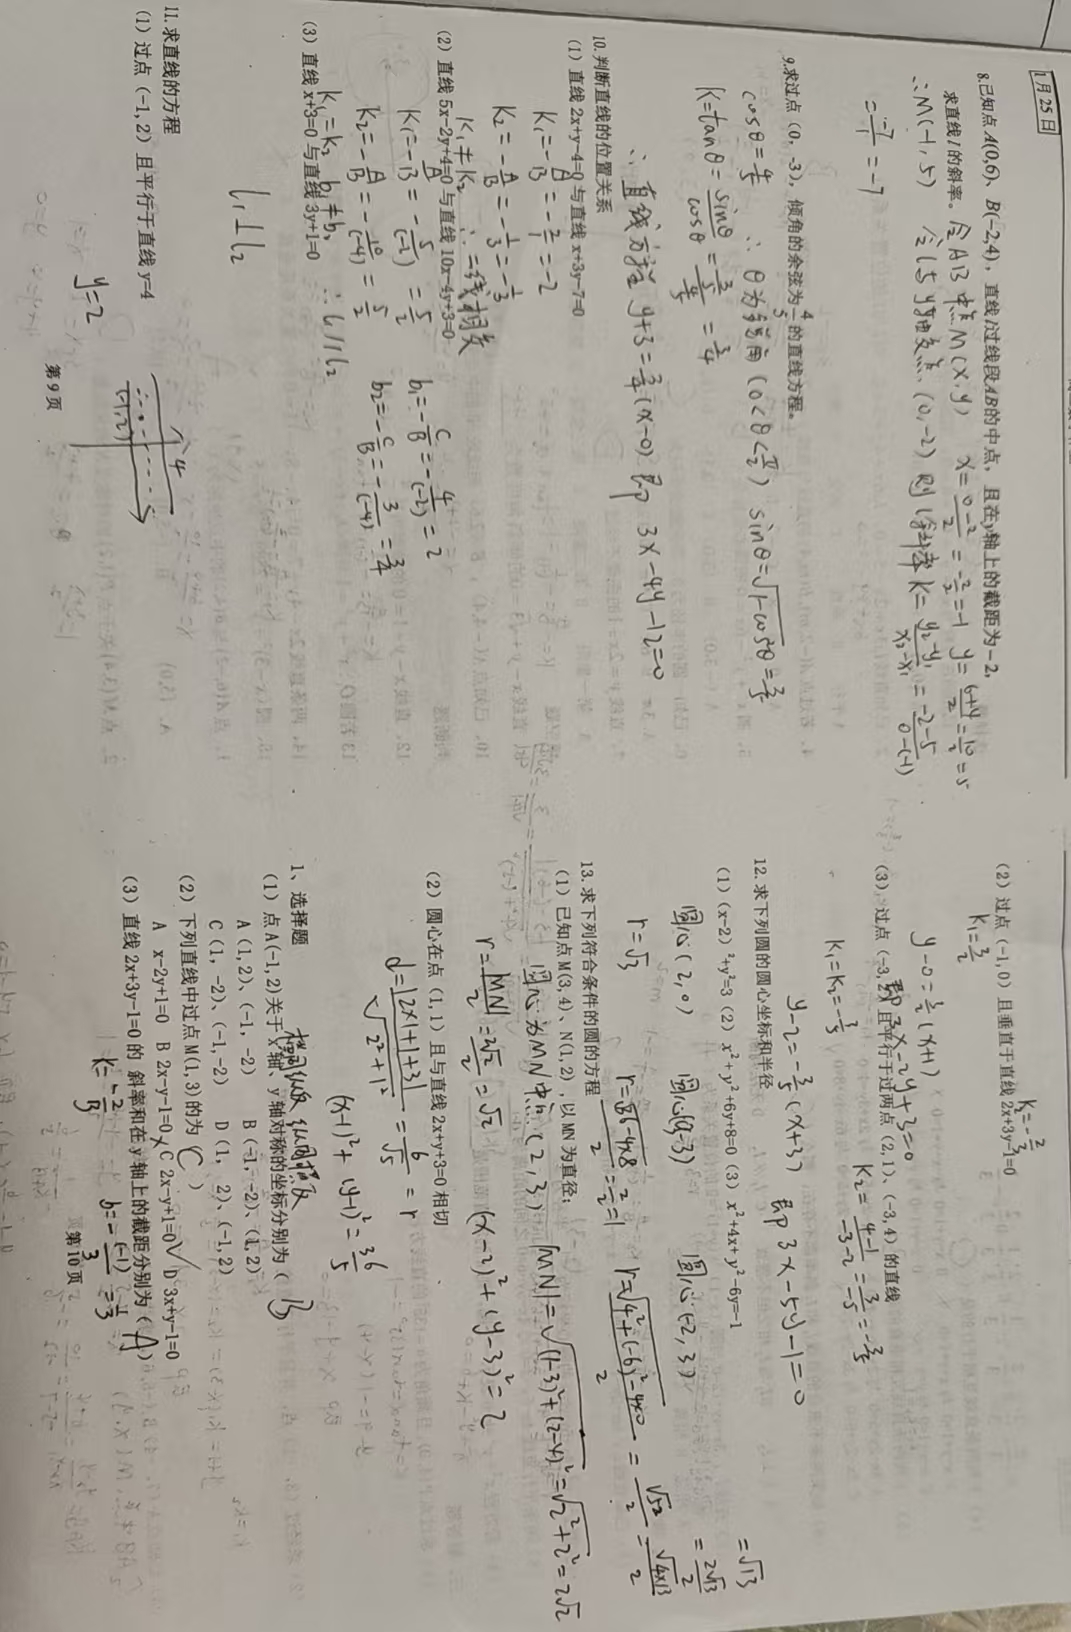 1月25日
8.已知点A(0,6)、B(-2,4)，直线l过线段AB的中点，且在y轴上的截距为-2，
求直线l的斜率。令AB中点M(x,y) x=0-2/2=-2/2=-1 y=6+4/2=10/2=5
∴M(-1,5) 令l与y轴交点(0,-2) 则l斜率K=y₂-y₁/x₂-x₁=-2-5/0-(-1)
=-7/1=-7
9.求过点（0，-3），倾角的余弦为4/5的直线方程。
cosθ=4/5 ∴θ为锐角(0<θ<π/2) sinθ=√1-cos²θ=3/5
K=tanθ=sinθ/cosθ=3/5/4/5=3/4
∴直线方程 y+3=3/4(x-0) 即 3x-4y-12=0
10.判断直线的位置关系
（1）直线2x+y-4=0与直线x+3y-7=0
K₁=-A/B=-2/1=-2
K₂=-A/B=-1/3=-1/3
K₁≠K₂ ∴二线相交
（2）直线5x-2y+4=0与直线10x-4y+3=0
K₁=-A/B=-5/(-2)=5/2 b₁=-C/B=-4/(-2)=2
K₂=-A/B=-10/(-4)=5/2 b₂=-C/B=-3/(-4)=3/4
K₁=K₂ b₁≠b₂ ∴l₁//l₂
（3）直线x+3=0与直线3y+1=0
l₁⊥l₂
11.求直线的方程
（1）过点（-1，2）且平行于直线y=4
y=2
4
(-1,2)
第9页
（2）过点（-1,0）且垂直于直线2x+3y-1=0
K₁=3/2 K₂=-2/3
y-0=3/2(x+1)
即3x-2y+3=0
（3）过点（-3,2）且平行于过两点（2,1）、（-3,4）的直线
K₁=K₂=-3/5 K₂=4-1/-3-2=3/-5=-3/5
y-2=-3/5(x+3) 即3x-5y-1=0
12.求下列圆的圆心坐标和半径
（1）(x-2)²+y²=3（2）x²+y²+6y+8=0（3）x²+4x+y²-6y=-1
圆心(2,0) 圆心(0,-3) 圆心(-2,3)
r=√3
13.求下列符合条件的圆的方程
（1）已知点M(3,4)、N(1,2)，以MN为直径；
圆心为MN中点(2,3) |MN|=√(1-3)²+(2-4)²=√2²+2²=2√2
r=|MN|/2=2√2/2=√2 (x-2)²+(y-3)²=2
（2）圆心在点（1,1）且与直线2x+y+3=0相切
d=|2x1+1+3|/√2²+1²=6/√5=r
(x-1)²+(y-1)²=36/5
1、选择题
（1）点A(-1,2)关于x轴、y轴对称的坐标分别为（B
A(1,2)、(-1,-2) B(-1,-2)、(1,2)
C(1,-2)、(-1,-2) D(1,2)、(-1,2)
（2）下列直线中过点M(1,3)的为（C）
A x-2y+1=0 B 2x-y-1=0 × C 2x-y+1=0 √ D 3x+y-1=0
（3）直线2x+3y-1=0的斜率和在y轴上的截距分别为（A）
第10页